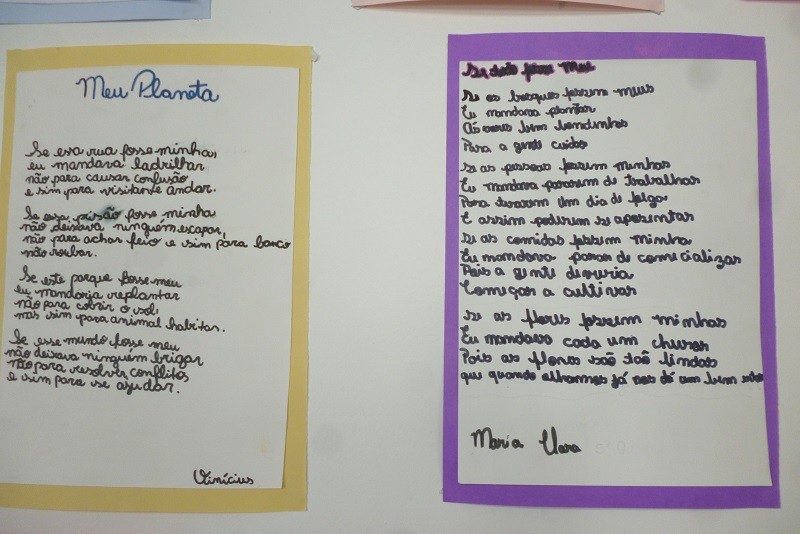 Meu Planeta
Se essa rua fosse minha,
eu mandava ladrilhar
não para causar confusão
e sim para visitante andar.
Se essa prisão fosse minha
não deixava ninguém escapar,
não para achar feio e sim para banco
não roubar.
Se este parque fosse meu
eu mandaria replantar
não para cobrir o sol,
mas sim para animal habitar.
Se esse mundo fosse meu
não deixava ninguém brigar
não para resolver conflitos
e sim para se ajudar.
Vinícius
Se os bosques fossem meus
Eu mandava plantar
Para a gente cuidar
Se as pessoas fossem minhas
Eu mandava pararem de trabalhar
Para terem um dia de folga
E assim poderem se aposentar
Se as comidas fossem minha
Eu mandava parar de comercializar
Pois a gente deveria
Começar a cultivar
Se as flores fossem minhas
Eu mandava cada um cheirar
Pois as flores são taõ lindas
que quando olhamos já nos dá um bem
Maria Clara